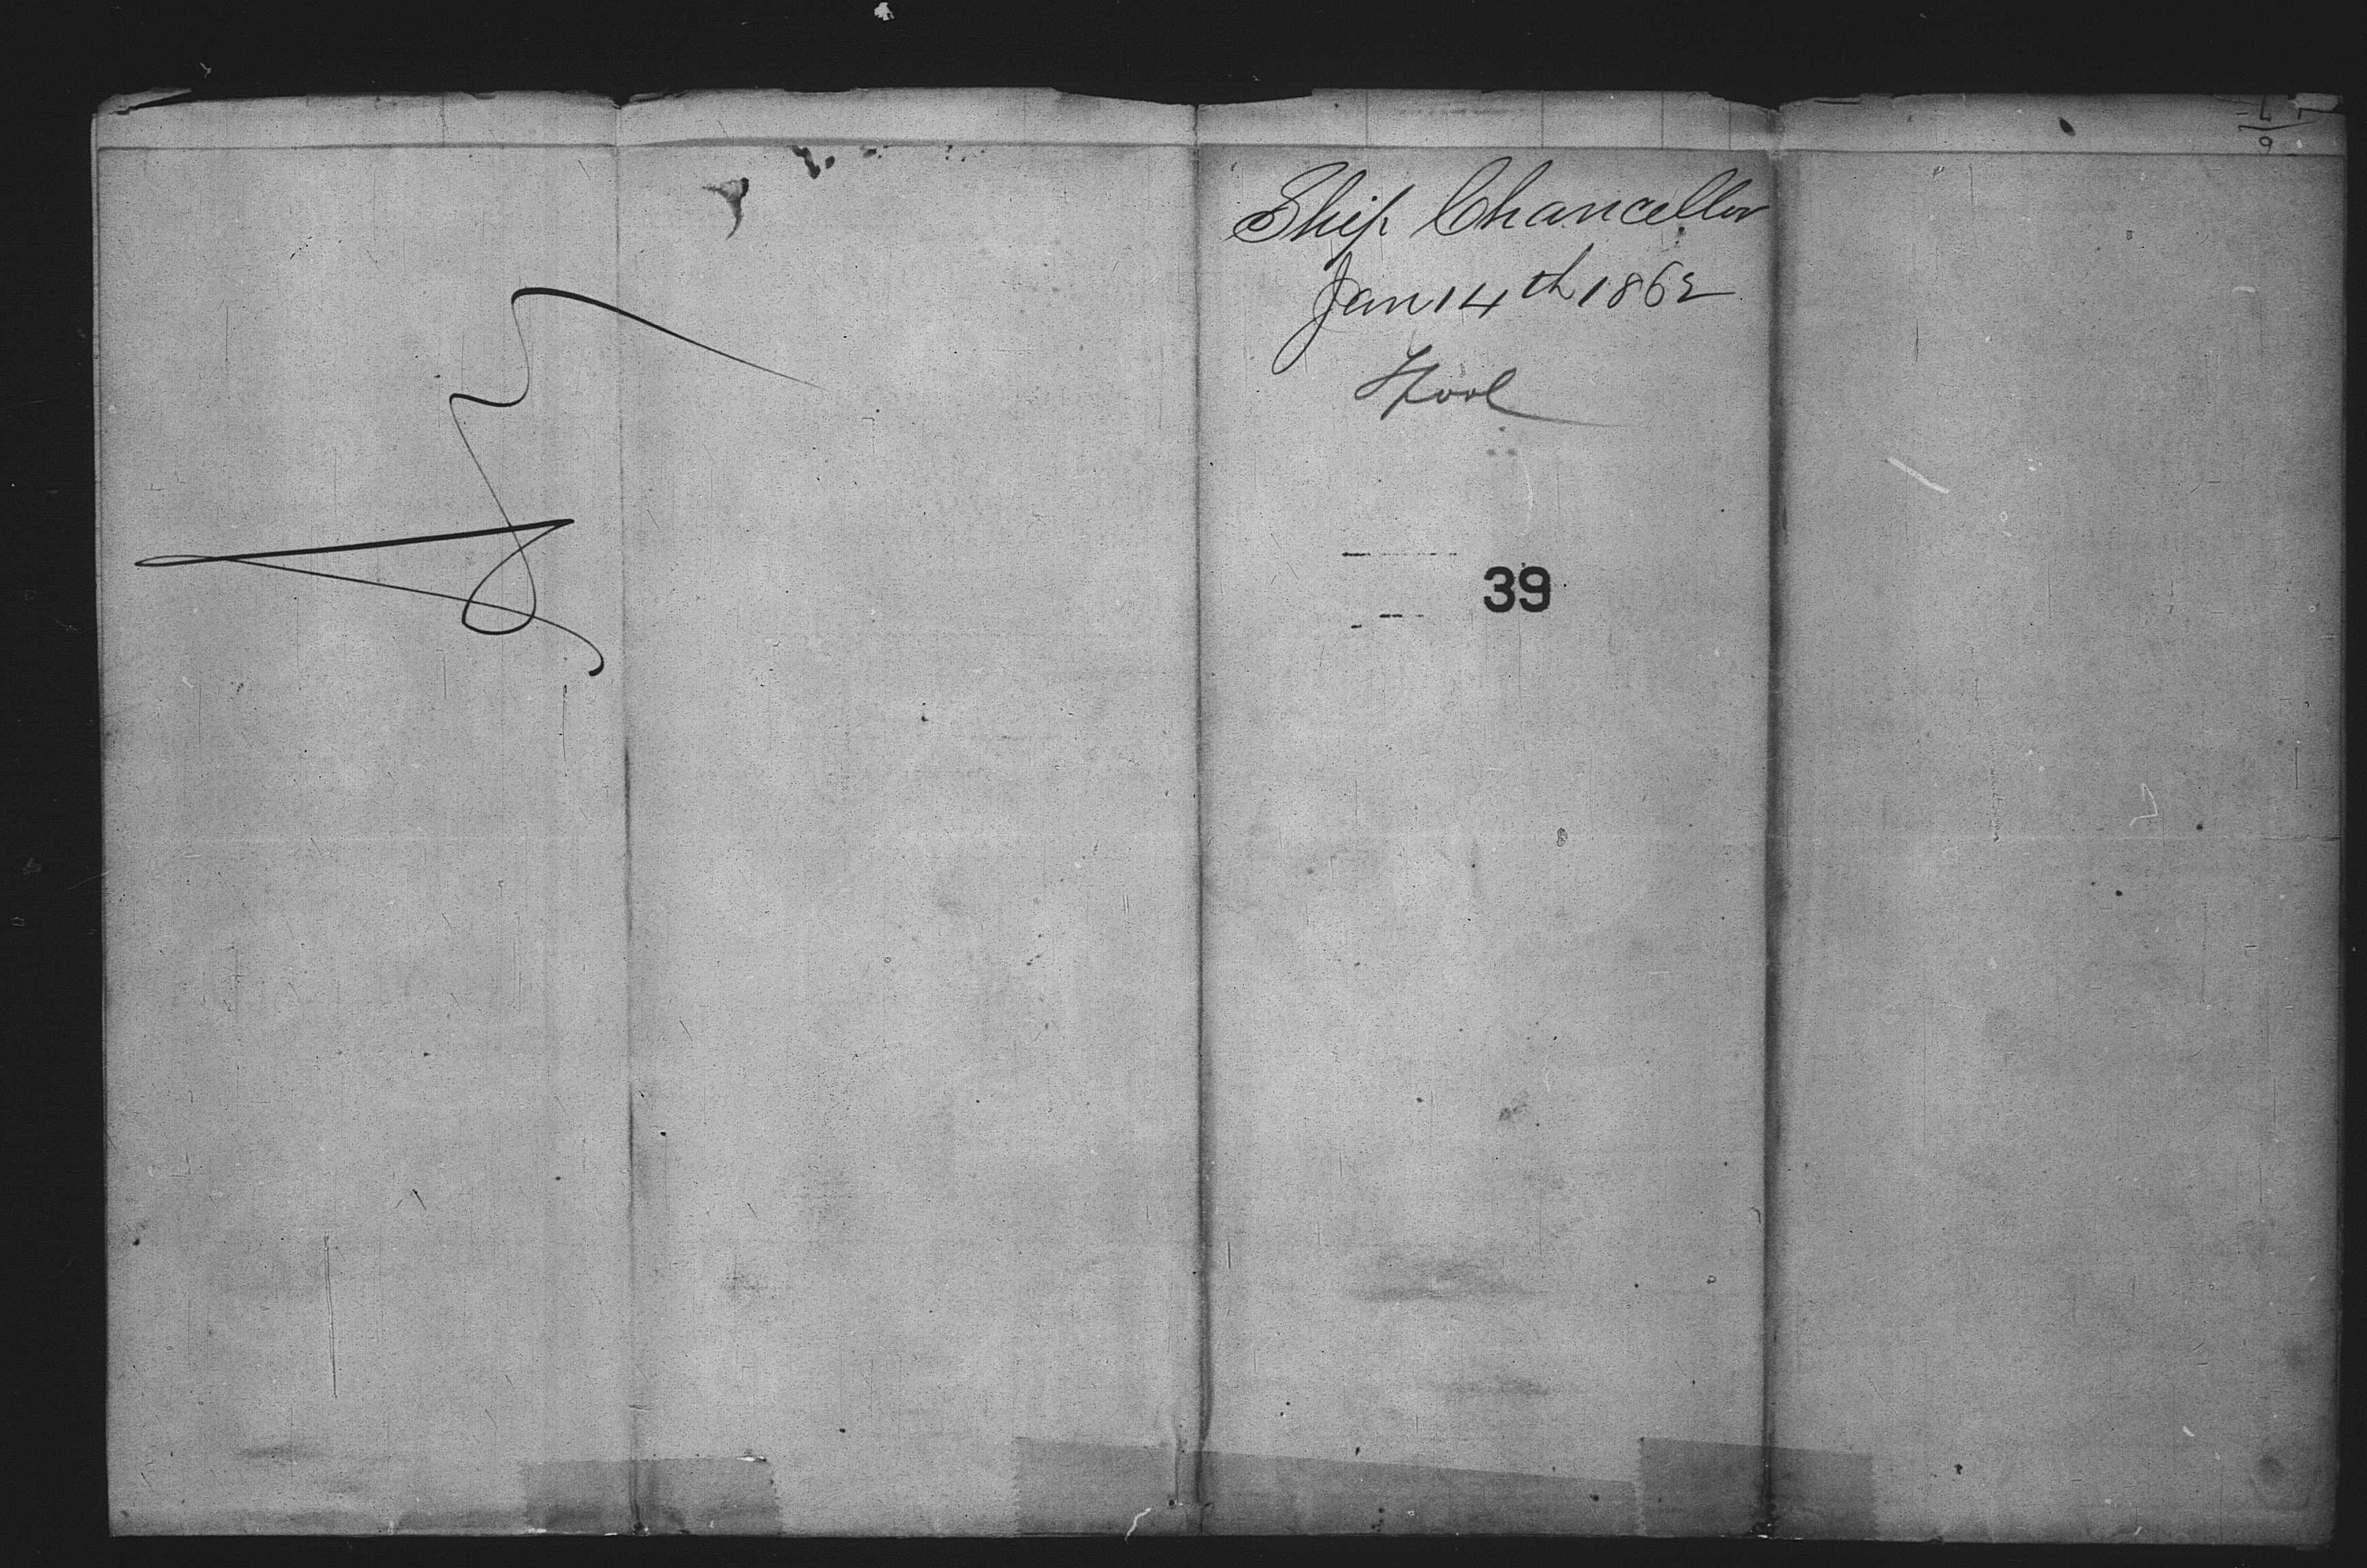 Ship Chancellor
Jan 14th 1862
L'pool
39